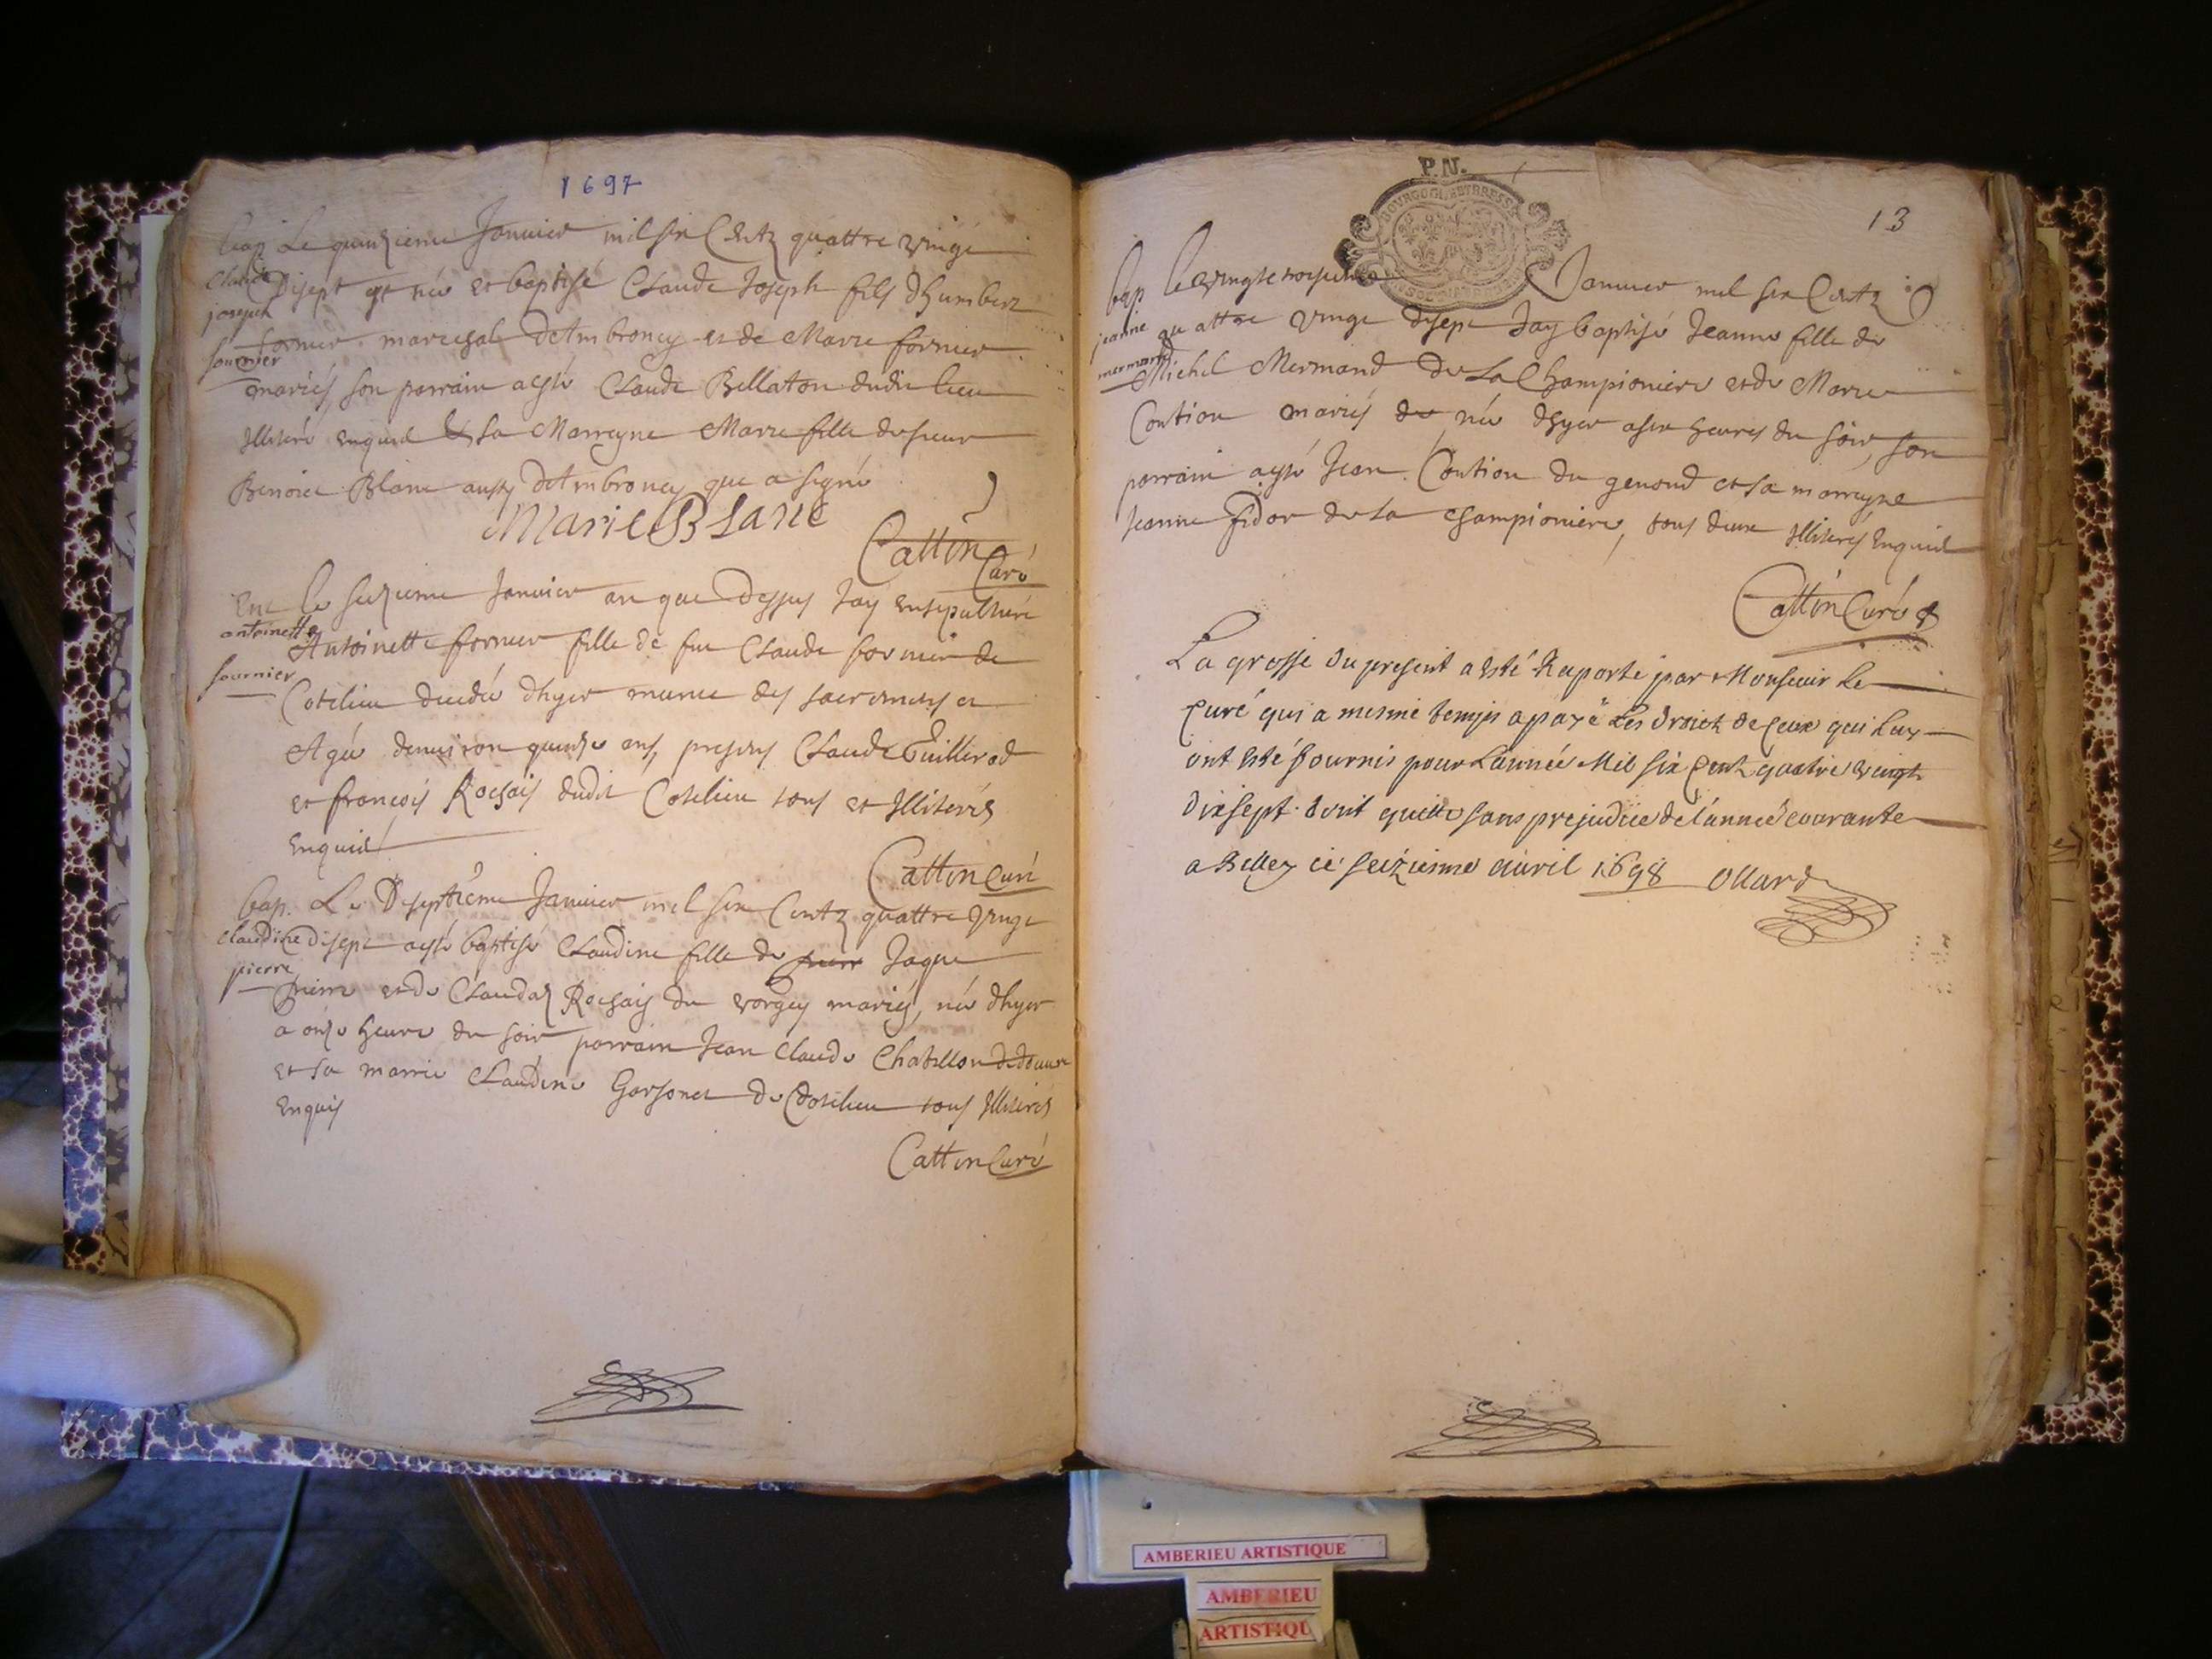 1697
bap. Le quinzieme Janvier mil six Centz quattre vingt
Claude
joseph
fournier
Disept est née et baptisé Claude Joseph fils d'humbert
fornier mareschal d'Ambroney et de Marie fornier
mariés, son parrain a esté Claude Bellaton dudit lieu
Illiteré enquis & sa Marreyne Marie fille de sieur
Benoict Blanc aussy d'Ambroney que a signé
Marie BLanc
Cattin
Curé
Ent le seizieme Janvier an que dessus Jay ensepulturé
antoinette
fournier
Antoinette fornier fille de feu Claude fornier de
Cotelieu decedée dhyer munie des sacremens et
Agée denviron quinze ans, presens Claude Cuillerod
et francois Rochais dudit Cotelieu tous et Illiterés
enquis
Cattin Curé
bap. Le Dyseptieme Janvier mil six Centz quattre vingt
claudine
pierre
disept a esté baptisé Claudine fille de pierr Jaque
pierre et de Claudaz Rochais du vorgey mariés, née dhyer
a onze heure du soir parrain Jean Claude Chatillon de douvre
et sa marrie Claudine Garsonet de Cotelieu tous Illiterés
Enquis
Cattin Curé
P.N.
BOURGOGNE ET BRESSE
13
bap le vingt troisieme Janvier mil six Centz
jeanne
mermand
quattre vingt disept Jay baptisé Jeanne fille de
Michel Mermand de La Championiere et de Marie
Coution mariés de née dhyer a six heures du soir, son
parrain a esté Jean Coution du genoud et sa marreyne
Jeanne fidor de la championiere, tous deux Illiterés Enquis
Cattin Curé &
La grosse du present a esté Raporté par Monsieur Le
Curé qui a mesme temps a payé Les droictz de ceux qui Luy
ont esté fournis pour L'année Mil six centz quatre vingt
dixsept dont quitte sans prejudice de l'année courante
a Belley ce seizieme avril 1698 Ollard
AMBERIEU ARTISTIQUE
AMBERIEU
ARTISTIQU